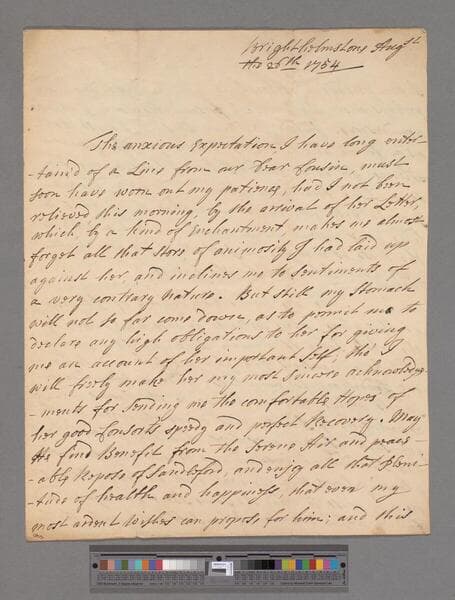 Brighthelmstone Augst
the 26th 1754
The anxious Expectation I have long enter-
-tain'd of a Line from our Dear Cousin, must
soon have worn out my patience, had I not been
relieved this morning, by the arrival of her Letter,
which, by a kind of Enchantment, makes me almost
forget all that store of animosity I had laid up
against her, and inclines me to Sentiments of
a very contrary Nature. But still my Stomach
will not so far come down, as to permit me to
declare any high obligations to her for giving
me an account of her important Self, tho' I
will freely make her my most sincere acknowledge-
-ments for sending me the comfortable Hopes of
her good Consorts speedy and perfect Recovery. May
He find Benefit from the Serene Air and peace-
-able Repose of Sandleford, and enjoy all that pleni-
-tude of health and happiness, that even my
most ardent Wishes can propose for him; and this